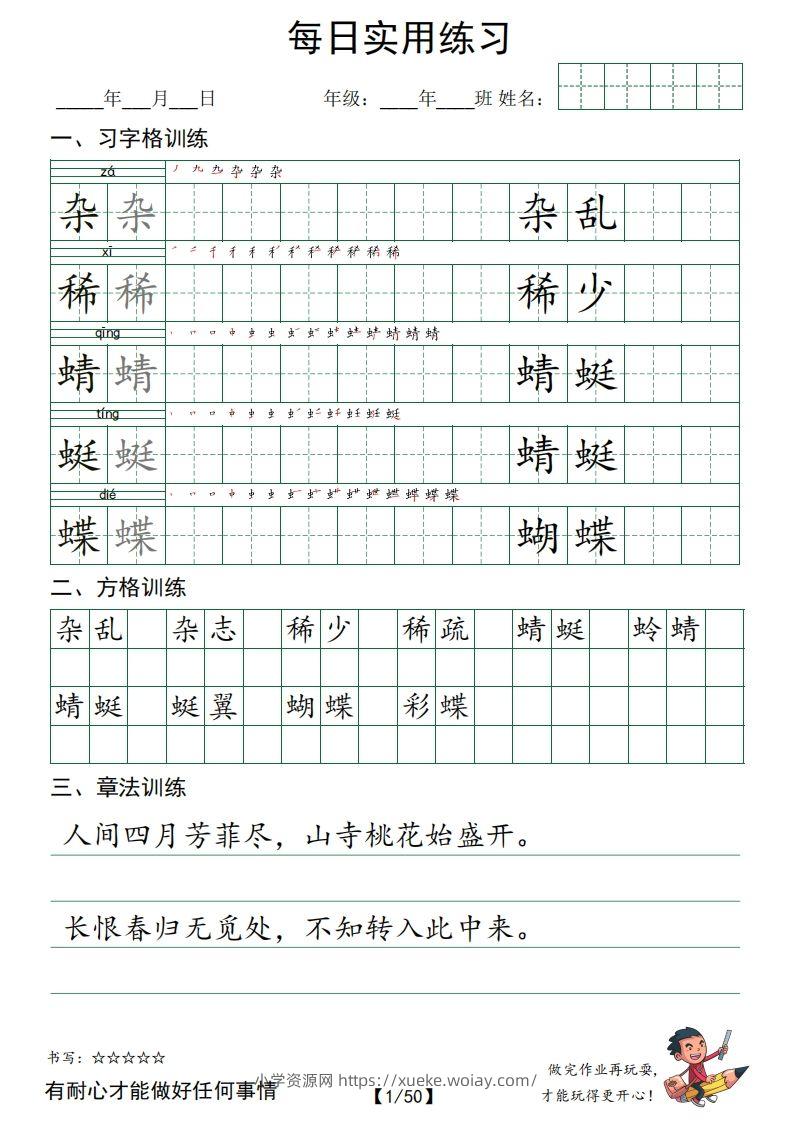 每日实用练习
_____年___月___日 年级：____年____班 姓名：
一、习字格训练
zá
杂 杂 杂 乱
xī
稀 稀 稀 少
qīng
蜻 蜻 蜻 蜓
tíng
蜓 蜓 蜻 蜓
dié
蝶 蝶 蝴 蝶
二、方格训练
杂 乱 杂 志 稀 少 稀 疏 蜻 蜓 蛉 蜻
蜻 蜓 蜓 翼 蝴 蝶 彩 蝶
三、章法训练
人间四月芳菲尽，山寺桃花始盛开。
长恨春归无觅处，不知转入此中来。
书写：☆☆☆☆☆
有耐心才能做好任何事情
小学资源网 https://xueke.woiay.com/
【1/50】
做完作业再玩耍，
才能玩得更开心！